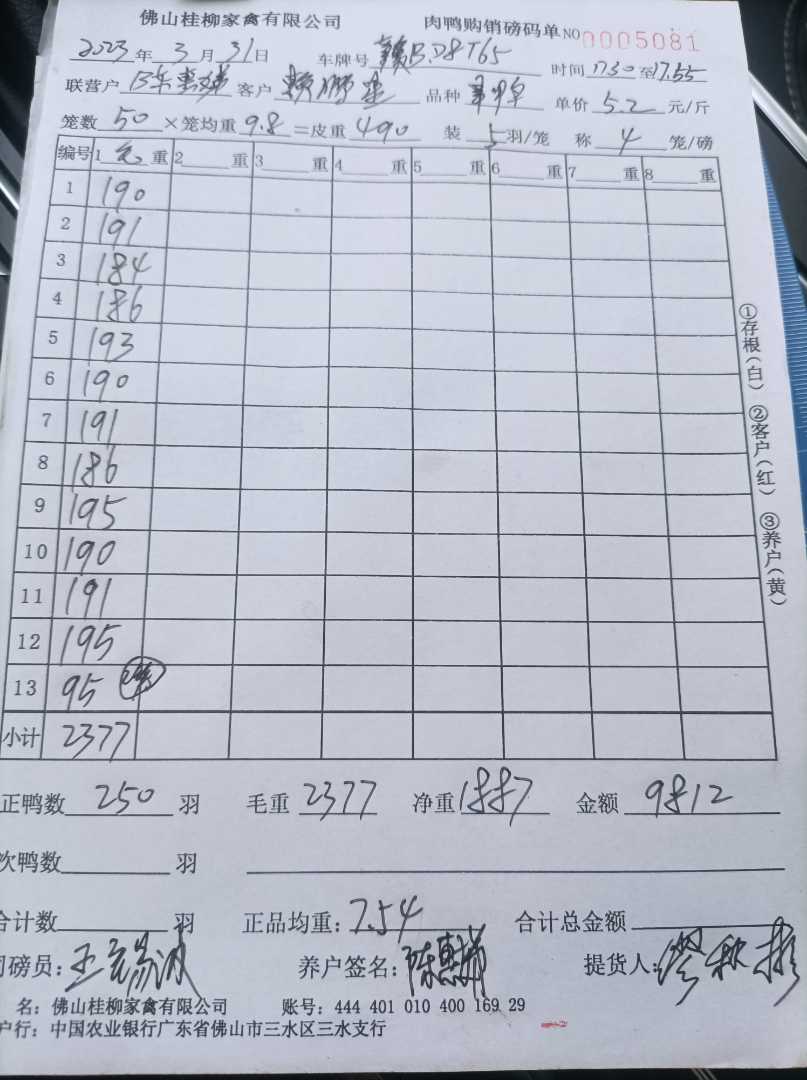 佛山桂柳家禽有限公司 肉鸭购销磅码单 NO 0005081
2023年 3月 31日 车牌号 赣B.D8T65 时间 17.30 至 17.55
联营户 陈惠 客户 赖鹏 品种 单价 5.2 元/斤
笼数 50 ×笼均重 9.8 =皮重 490 装 5 羽/笼 称 4 笼/磅
编号 1 毛 重 2 重 3 重 4 重 5 重 6 重 7 重 8 重
1 190
2 191
3 184
4 186
5 193
6 190
7 191
8 186
9 195
10 190
11 191
12 195
13 95
小计 2377
正鸭数 250 羽 毛重 2377 净重 1887 金额 9812
次鸭数 羽
合计数 羽 正品均重: 7.54 合计总金额
司磅员: 王 养户签名: 陈惠 提货人: 秋彬
名: 佛山桂柳家禽有限公司 账号: 444 401 010 400 169 29
户行: 中国农业银行广东省佛山市三水区三水支行
①存根(白) ②客户(红) ③养户(黄)